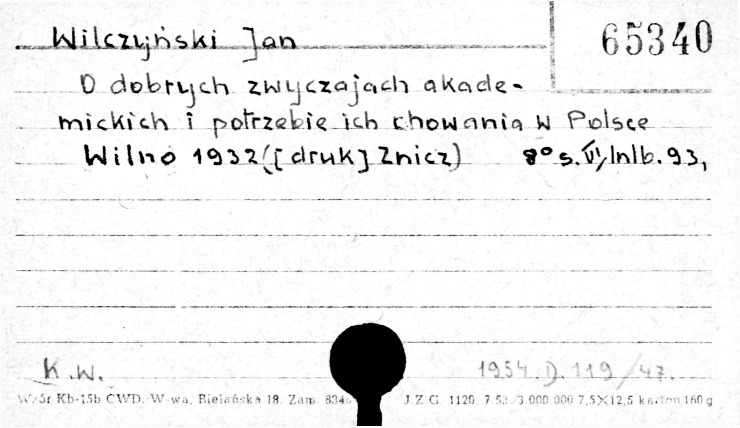 Wilczyński Jan 65340
O dobrych zwyczajach akade-
mickich i potrzebie ich chowania w Polsce
Wilno 1932 ([druk] Znicz) 8° s. VI, 1nlb. 93,
K.W. 1954. D. 119/47.
Wzór Kb-15b CWD. W-wa, Bielańska 18. Zam. J.Z.G. 1120. 7.53. 3.000.000 7,5×12,5 karton 160 g